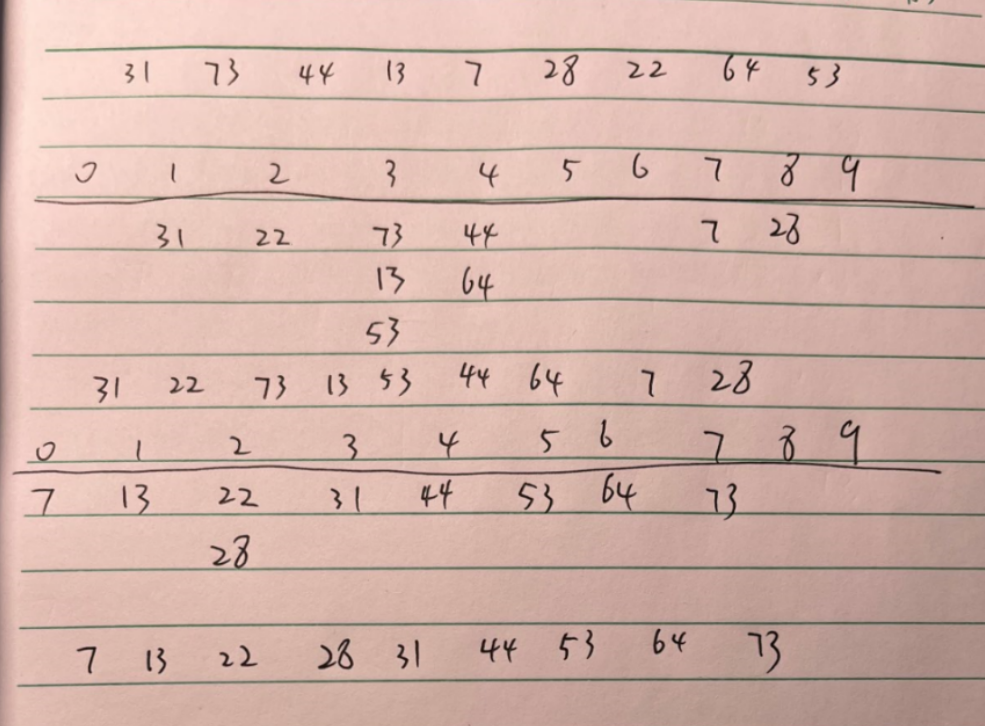 31 73 44 13 7 28 22 64 53
0 1 2 3 4 5 6 7 8 9
31 22 73 44 7 28
13 64
53
31 22 73 13 53 44 64 7 28
0 1 2 3 4 5 6 7 8 9
7 13 22 31 44 53 64 73
28
7 13 22 28 31 44 53 64 73